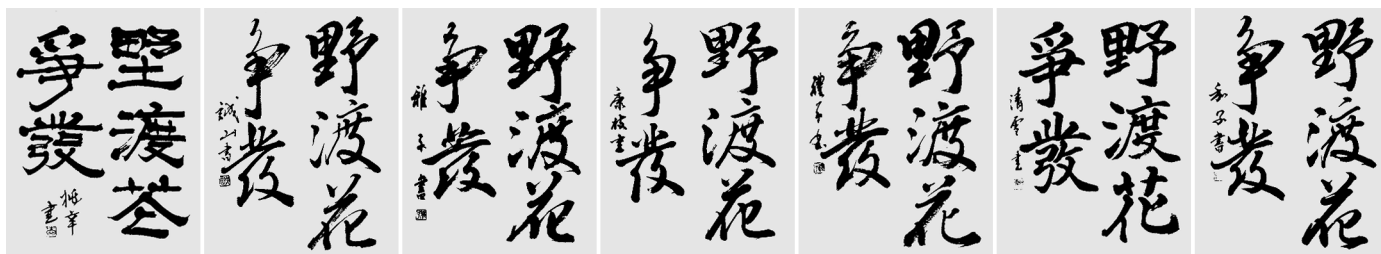 野渡花
爭發
書
野渡花
争發
誠山書
野渡花
争發
雅子書
野渡花
争發
康枝書
野渡花
争發
禮子書
野渡花
爭發
清雲書
野渡花
争發
和子書